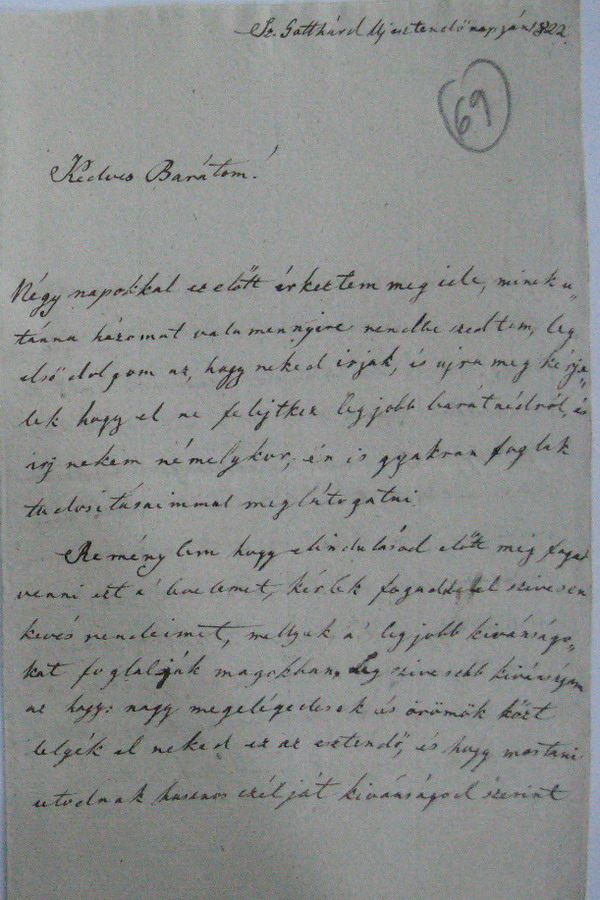 Sz. Gotthárd Uj esztendő napján 1822.
69
Kedves Barátom!
Négy napokkal ez előtt érkeztem meg ide, minek u„
tánna házomat valamennyire rendbe szedtem, leg
első dolgom az, hogy neked irjak, és ujra meg kérje„
lek hogy el ne felejtkez legjobb barátnédról, és
irj nekem némelykor, én is gyakran foglak
tudositásaimmal meglátogatni.
Reménylem hogy elindulásod előtt még fogod
venni ezt a' levelemet, kérlek fogadd el szivesen
kevés rendeimet, mellyek a' legjobb kivánságo„
kat foglalják magokban. Leg szivesebb kivánságom
az hogy: nagy megelégedések és örömök közt
telyék el neked ez az esztendő, és hogy mostani
utodnak hasznos czélját kivánságod szerint